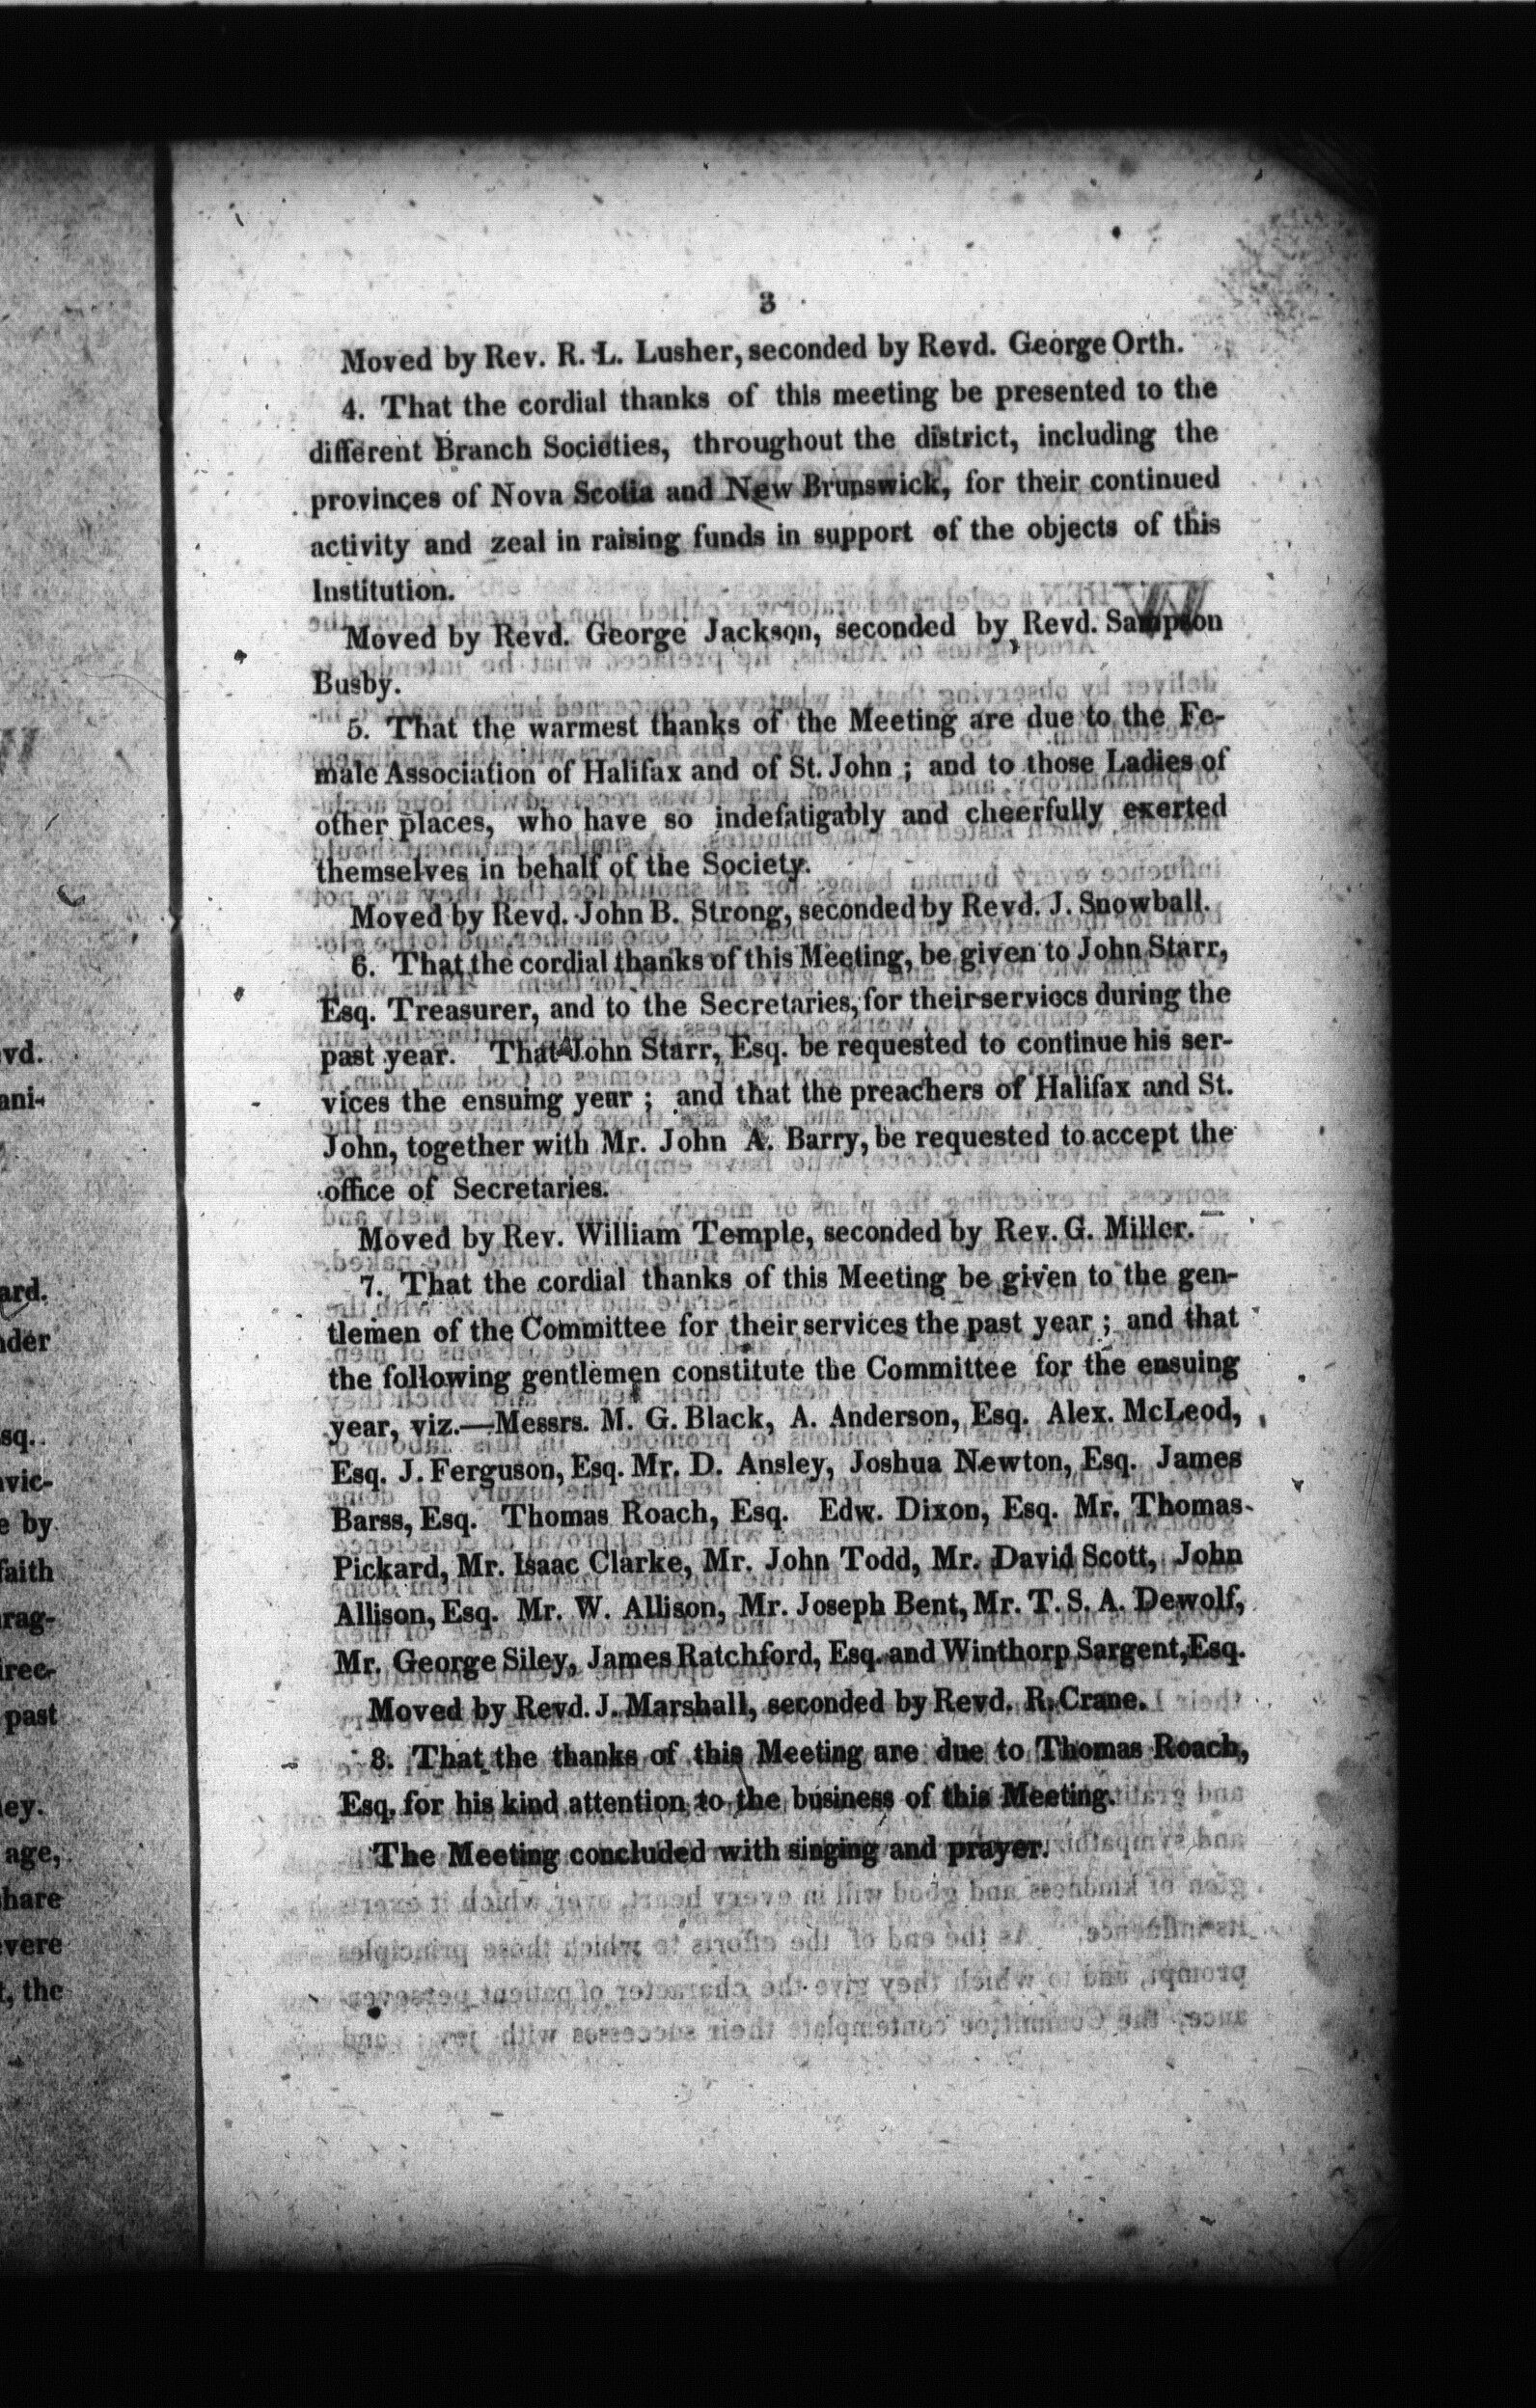 3
Moved by Rev. R. L. Lusher, seconded by Revd. George Orth.
4. That the cordial thanks of this meeting be presented to the
different Branch Societies, throughout the district, including the
provinces of Nova Scotia and New Brunswick, for their continued
activity and zeal in raising funds in support of the objects of this
Institution.
Moved by Revd. George Jackson, seconded by Revd. Sampson
Busby.
5. That the warmest thanks of the Meeting are due to the Fe-
male Association of Halifax and of St. John ; and to those Ladies of
other places, who have so indefatigably and cheerfully exerted
themselves in behalf of the Society.
Moved by Revd. John B. Strong, seconded by Revd. J. Snowball.
6. That the cordial thanks of this Meeting, be given to John Starr,
Esq. Treasurer, and to the Secretaries, for their services during the
past year. That John Starr, Esq. be requested to continue his ser-
vices the ensuing year ; and that the preachers of Halifax and St.
John, together with Mr. John A. Barry, be requested to accept the
office of Secretaries.
Moved by Rev. William Temple, seconded by Rev. G. Miller.
7. That the cordial thanks of this Meeting be given to the gen-
tlemen of the Committee for their services the past year ; and that
the following gentlemen constitute the Committee for the ensuing
year, viz.—Messrs. M. G. Black, A. Anderson, Esq. Alex. McLeod,
Esq. J. Ferguson, Esq. Mr. D. Ansley, Joshua Newton, Esq. James
Barss, Esq. Thomas Roach, Esq. Edw. Dixon, Esq. Mr. Thomas
Pickard, Mr. Isaac Clarke, Mr. John Todd, Mr. David Scott, John
Allison, Esq. Mr. W. Allison, Mr. Joseph Bent, Mr. T. S. A. Dewolf,
Mr. George Siley, James Ratchford, Esq. and Winthorp Sargent, Esq.
Moved by Revd. J. Marshall, seconded by Revd. R. Crane.
8. That the thanks of this Meeting are due to Thomas Roach,
Esq. for his kind attention to the business of this Meeting.
The Meeting concluded with singing and prayer.